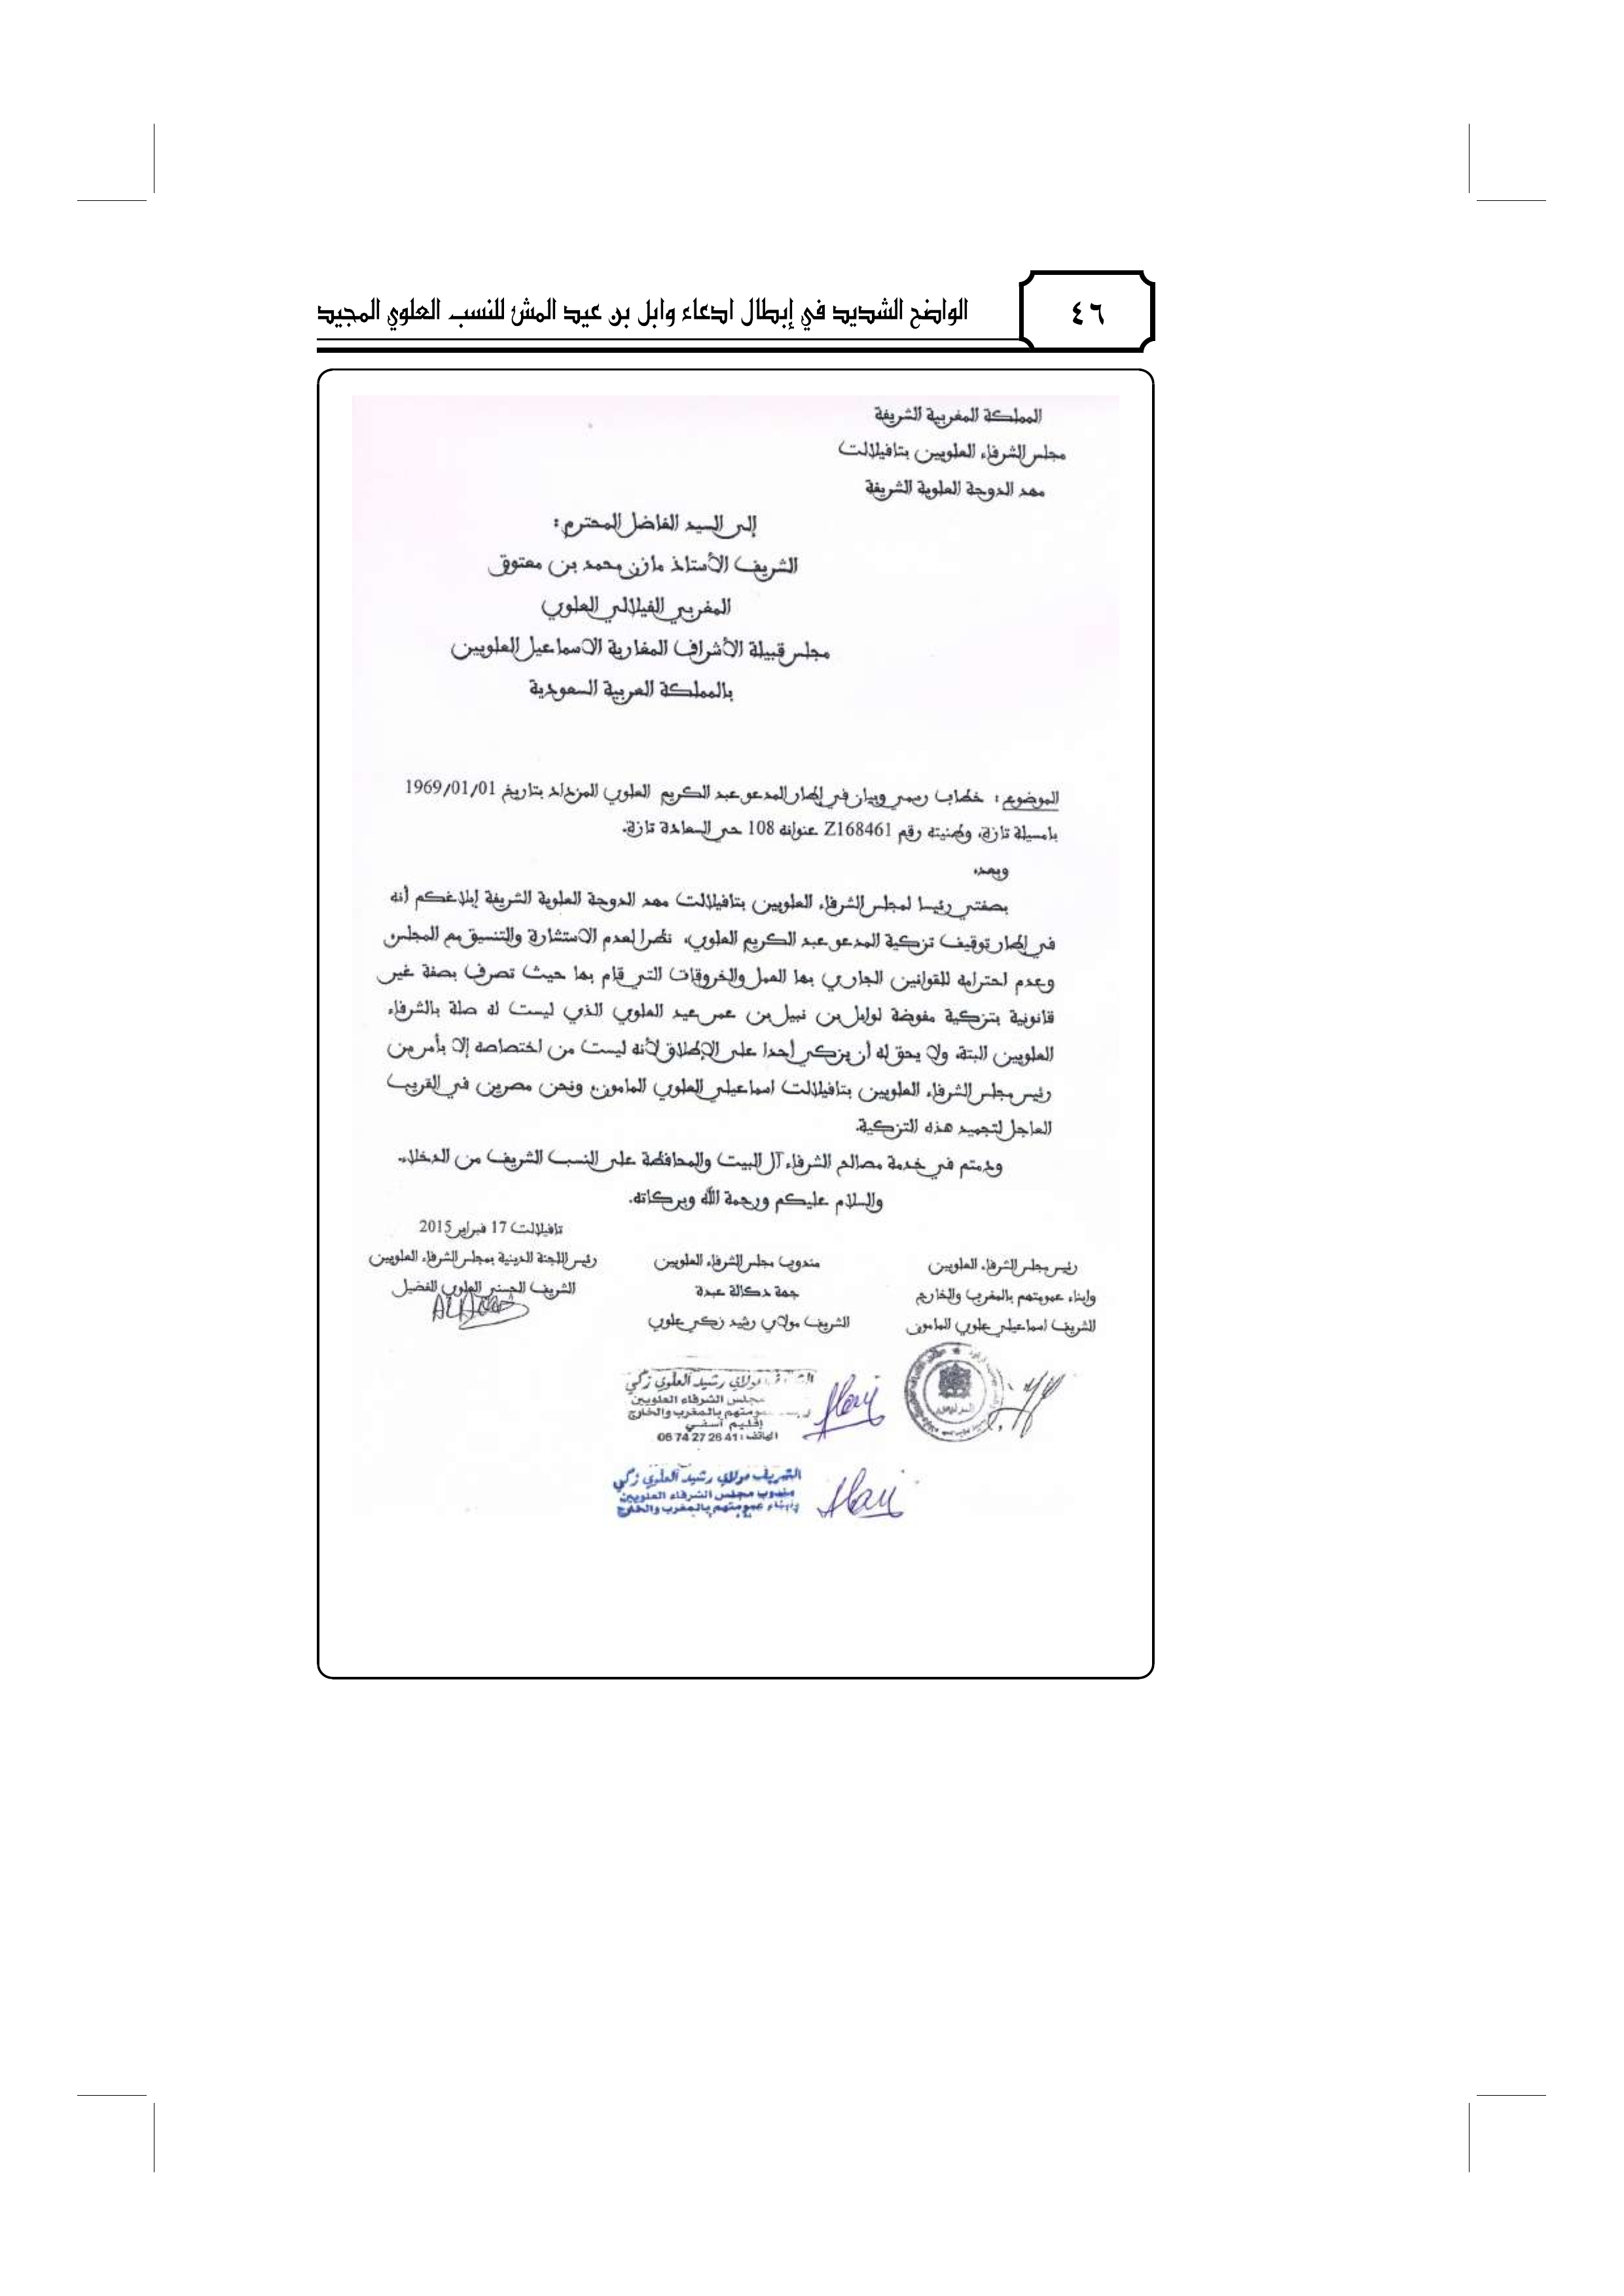 ٤٦
الواضح الشديد في إبطال ادعاء وابل بن عيد المش للنسب العلوي المجيد
المملكة المغربية الشريفة
مجلس الشرفاء العلويين بتافيلالت
مهد الدوحة العلوية الشريفة
إلى السيد الفاضل المحترم :
الشريف الأستاذ مازن محمد بن معتوق
المغربي الفيلالي العلوي
مجلس قبيلة الأشراف المغاربة الاسماعيل العلويين
بالمملكة العربية السعودية
الموضوع : خطاب رسمي وبيان في إطار المدعو عبد الكريم العلوي المزداد بتاريخ 1969/01/01
بامسيلة تازة، وطنيته رقم Z168461 عنوانه 108 حي السعادة تازة.
وبعد،
بصفتي رئيسا لمجلس الشرفاء العلويين بتافيلالت مهد الدوحة العلوية الشريفة إبلاغكم أنه
في إطار توقيف تزكية المدعو عبد الكريم العلوي، نظرا لعدم الاستشارة والتنسيق مع المجلس
وعدم احترامه للقوانين الجاري بها العمل والخروقات التي قام بها حيث تصرف بصفة غير
قانونية بتزكية مفوضة لوابل بن نبيل بن عمر عيد العلوي الذي ليست له صلة بالشرفاء
العلويين البتة، ولا يحق له أن يزكي أحدا على الإطلاق لأنه ليست من اختصاصه إلا بأمر من
رئيس مجلس الشرفاء العلويين بتافيلالت اسماعيلي العلوي المامون، ونحن مصرين في القريب
العاجل لتجميد هذه التزكية.
ودمتم في خدمة مصالح الشرفاء آل البيت والمحافظة على النسب الشريف من الدخلاء.
والسلام عليكم ورحمة الله وبركاته.
تافيلالت 17 فبراير 2015
رئيس مجلس الشرفاء العلويين
وابناء عمومتهم بالمغرب والخارج
الشريف اسماعيلي علوي المامون
مندوب مجلس الشرفاء العلويين
جهة دكالة عبدة
الشريف مولاي رشيد زكي علوي
رئيس اللجنة الدينية بمجلس الشرفاء العلويين
الشريف الحسني العلوي الفضيل
مولاي رشيد العلوي زكي
مجلس الشرفاء العلويين
عمومتهم بالمغرب والخارج
إقليم آسفي
الهاتف : 06 74 27 26 41
الشريف مولاي رشيد العلوي زكي
مندوب مجلس الشرفاء العلويين
وابناء عمومتهم بالمغرب والخارج